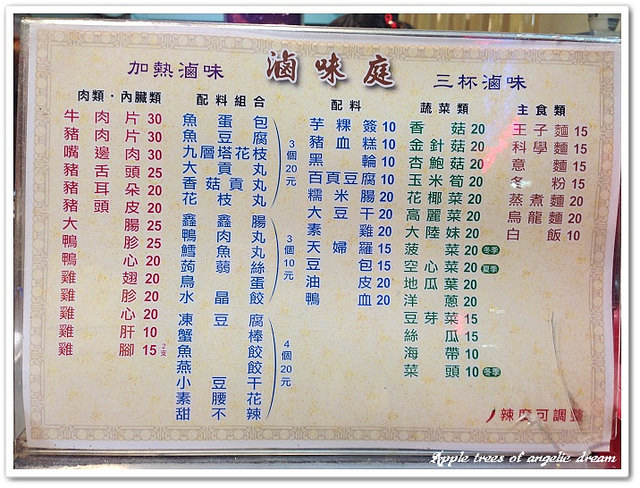 加熱滷味 滷味庭 三杯滷味
肉類・內臟類
牛肉片 30
豬肉片 30
嘴邊肉 30
豬舌頭 25
豬耳朵 20
豬頭皮 20
大腸 20
鴨胗 25
鴨心 20
雞翅 20
雞胗 20
雞心 20
雞肝 10
雞腳 15 2支
配料組合
魚蛋包
魚豆腐
九層塔花枝
大貢丸
香菇貢丸
花枝丸
3個20元
鑫鑫腸
鴨肉丸
鱈魚丸
蒟蒻絲
鳥蛋
水晶餃
3個10元
凍豆腐
蟹棒
魚餃
燕餃
小豆干
素腰花
甜不辣
4個20元
配料
芋粿簽 10
豬血糕 10
黑輪 10
百頁豆腐 10
糯米腸 20
大豆干 20
素雞 20
天婦羅 15
豆包 15
油皮 20
鴨血 20
蔬菜類
香菇 20
金針菇 20
杏鮑菇 20
玉米筍 20
花椰菜 20
高麗菜 20
大陸妹 20
菠菜 20 冬季
空心菜 20 夏季
地瓜葉 20
洋蔥 20
豆芽菜 15
絲瓜 15
海帶 10
菜頭 10 冬季
主食類
王子麵 15
科學麵 15
意麵 15
冬粉 15
蒸煮麵 20
烏龍麵 20
白飯 10
辣度可調整
Apple trees of angelic dream